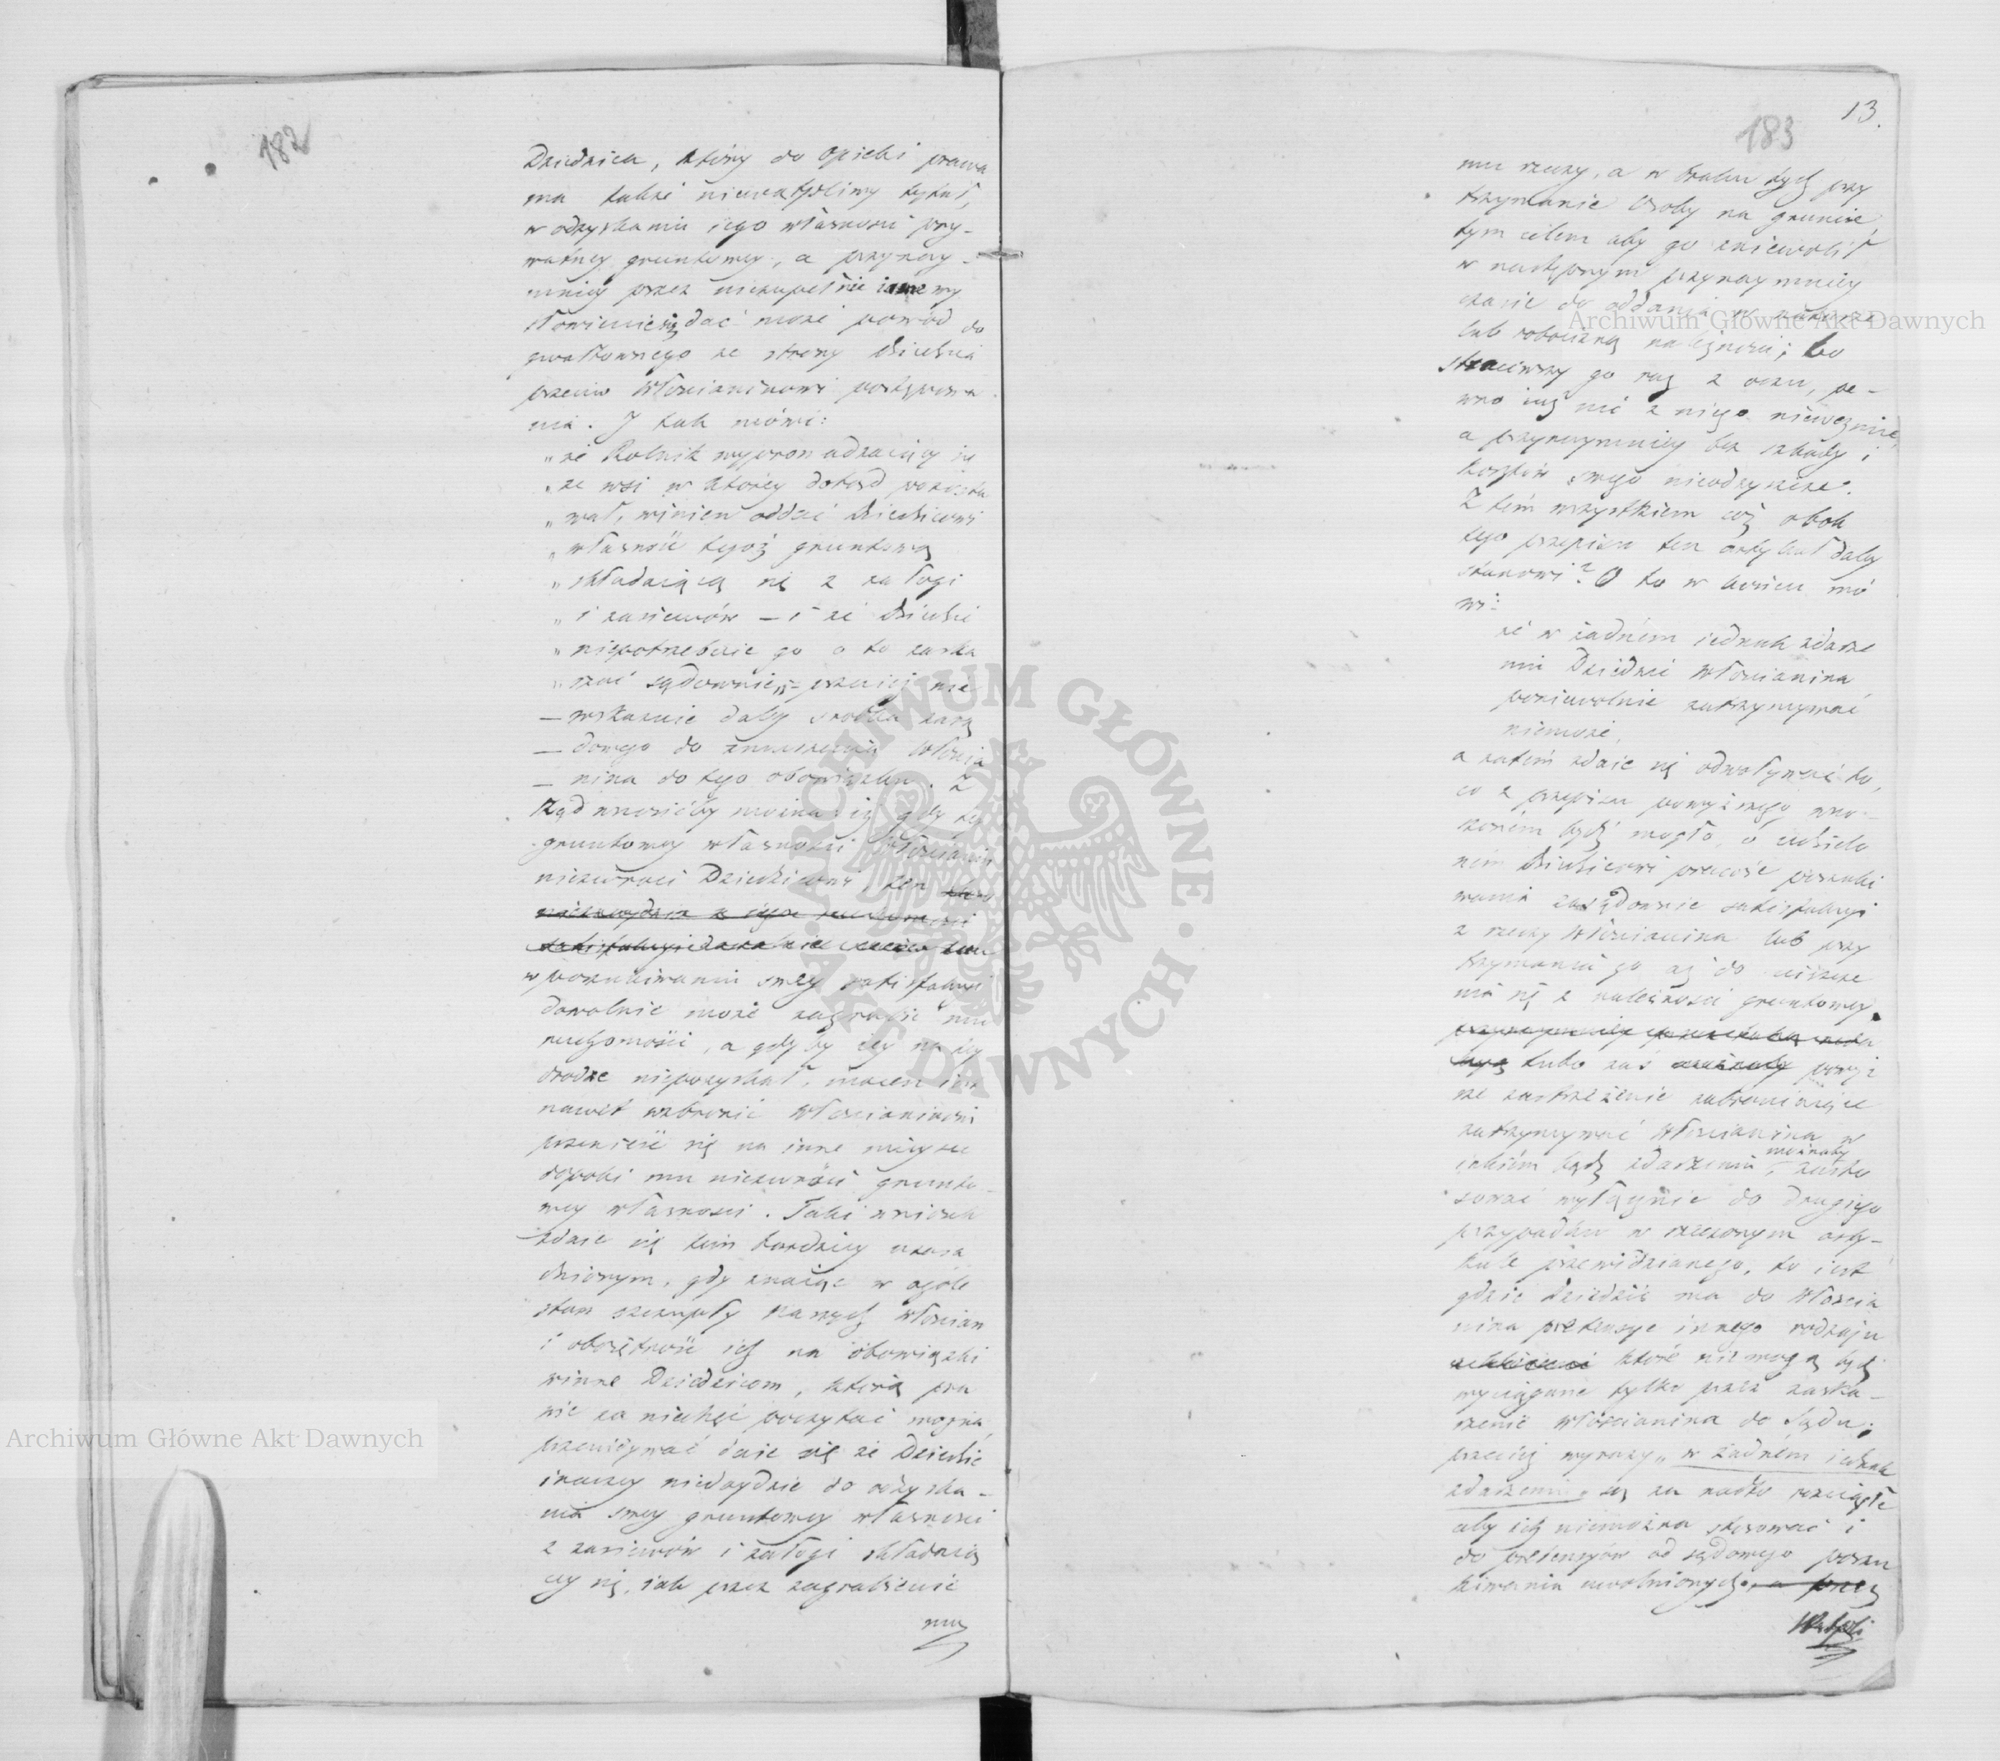 182
Dziedzica, który do opieki prawa
ma także niewątpliwy tytuł,
w odzyskaniu iego własności pry-
watney gruntowey, a przynay-
mniey przez niezupełnie iasne wy
słowienie się dać może powód do
gwałtownego ze strony Dziedzica
przeciw Włościaninowi postępowa
nia. I tak mówi:
„że Rolnik wyprowadzaiący się
„ze wsi w którey dotąd pozosta
„wał, winien oddać Dziedzicowi
„własność tegoż gruntową
„składaiącą się z załogi
„i zasiewów – i że Dziedzic
„niepotrzebuie go o to zaska
„rżać sądownie„ – przecież nie
– wskazuie daley środka zarzą
– dowego do zmuszenia Włościa
– nina do tego obowiązku. Z
kąd wnosićby można iż gdy tey
gruntowey własności Włościanin
niezwróci Dziedzicowi, ten
w poszukiwaniu swey satisfakcyi
dowolnie może zagrabić mu
ruchomości, a gdyby iey na tey
drodze niepozyskał, mocen iest
nawet wzbronić Włościaninowi
przenieść się na inne mieysce
dopóki mu niezwróci grunto-
wey własności. Taki wniosek
zdaie się tem bardziey uzasa
dnionym, gdy znaiąc w ogóle
stan szczupły naszych Włościan
i oboiętność ich na obowiązki
winne Dziedzicom, którą pra
wie za niechęć poczytać można,
przewidywać daie się że Dziedzic
inaczey niedoydzie do odzyska-
nia swey gruntowey własności
z zasiewów i załogi składaią
cey się, iak przez zagrabienie
mu
13.
183
mu rzeczy, a w braku tych przy
trzymanie osoby na gruncie,
tym celem aby go zniewolić
w następnym przynaymniey
czasie do oddania w naturze
lub robocizną należności; bo
straciwszy go raz z oczu, pe-
wno iuż nic z niego nieweźmie,
a przynaymniey bez szkody i
kosztów swego nieodzyszcze.
Z tém wszystkiem cóż obok
tego przepisu ten artykuł daley
stanowi? O to w końcu mó
wi:
że w żadném iednak zdarze
niu Dziedzic Włościanina
poniewolnie zatrzymywać
niemoże,
a zatém zdaie się odwoływać to,
co z przepisu powyższego wno-
szoném bydź mogło, o udzielo
ném Dziedzicowi prawie poszuki
wania zasądownie satisfakcyi
z rzeczy Włościanina lub przy
trzymania go aż do uiszcze
nia się z należności gruntowey.
lubo zaś powyż
sze zastrzeżenie zabraniaiące
zatrzymywać Włościanina w
iakiém bądź zdarzeniu, możnaby zasto
sować wyłącznie do drugiego
przypadku w rzeczonym arty-
kule przewidzianego, to iest
gdzie Dziedzic ma do Włościa
nina pretensye innego rodzaju
które niemogą bydź
wyciągane tylko przez zaska-
rżenie Włościanina do Sądu;
przecież wyrazy „w żadném iednak
zdarzeniu„ są za nadto rozciągłe
aby ich niemożna stosować i
do pretensyów od sądowego poszu
kiwania uwolnionych, a przez